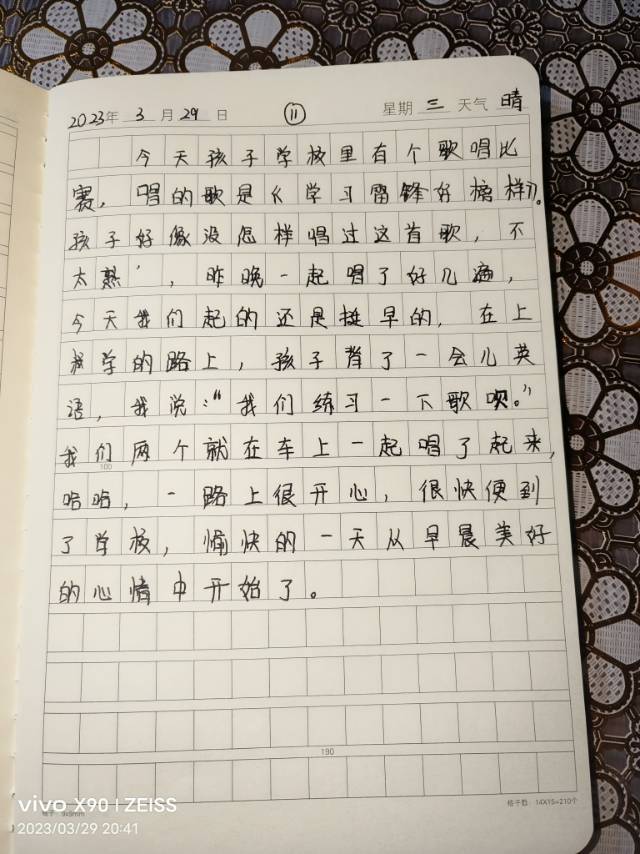 2023年 3 月 29 日 ⑪ 星期 三 天气 晴
今天孩子学校里有个歌唱比
赛，唱的歌是《学习雷锋好榜样》。
孩子好像没怎样唱过这首歌，不
太熟，昨晚一起唱了好几遍，
今天我们起的还是挺早的，在上
学的路上，孩子背了一会儿英
语，我说："我们练习一下歌呗。"
我们两个就在车上一起唱了起来，
100
哈哈，一路上很开心，很快便到
了学校，愉快的一天从早晨美好
的心情中开始了。
190
格子：9x9mm
格子数：14X15=210个
vivo X90 | ZEISS
2023/03/29 20:41